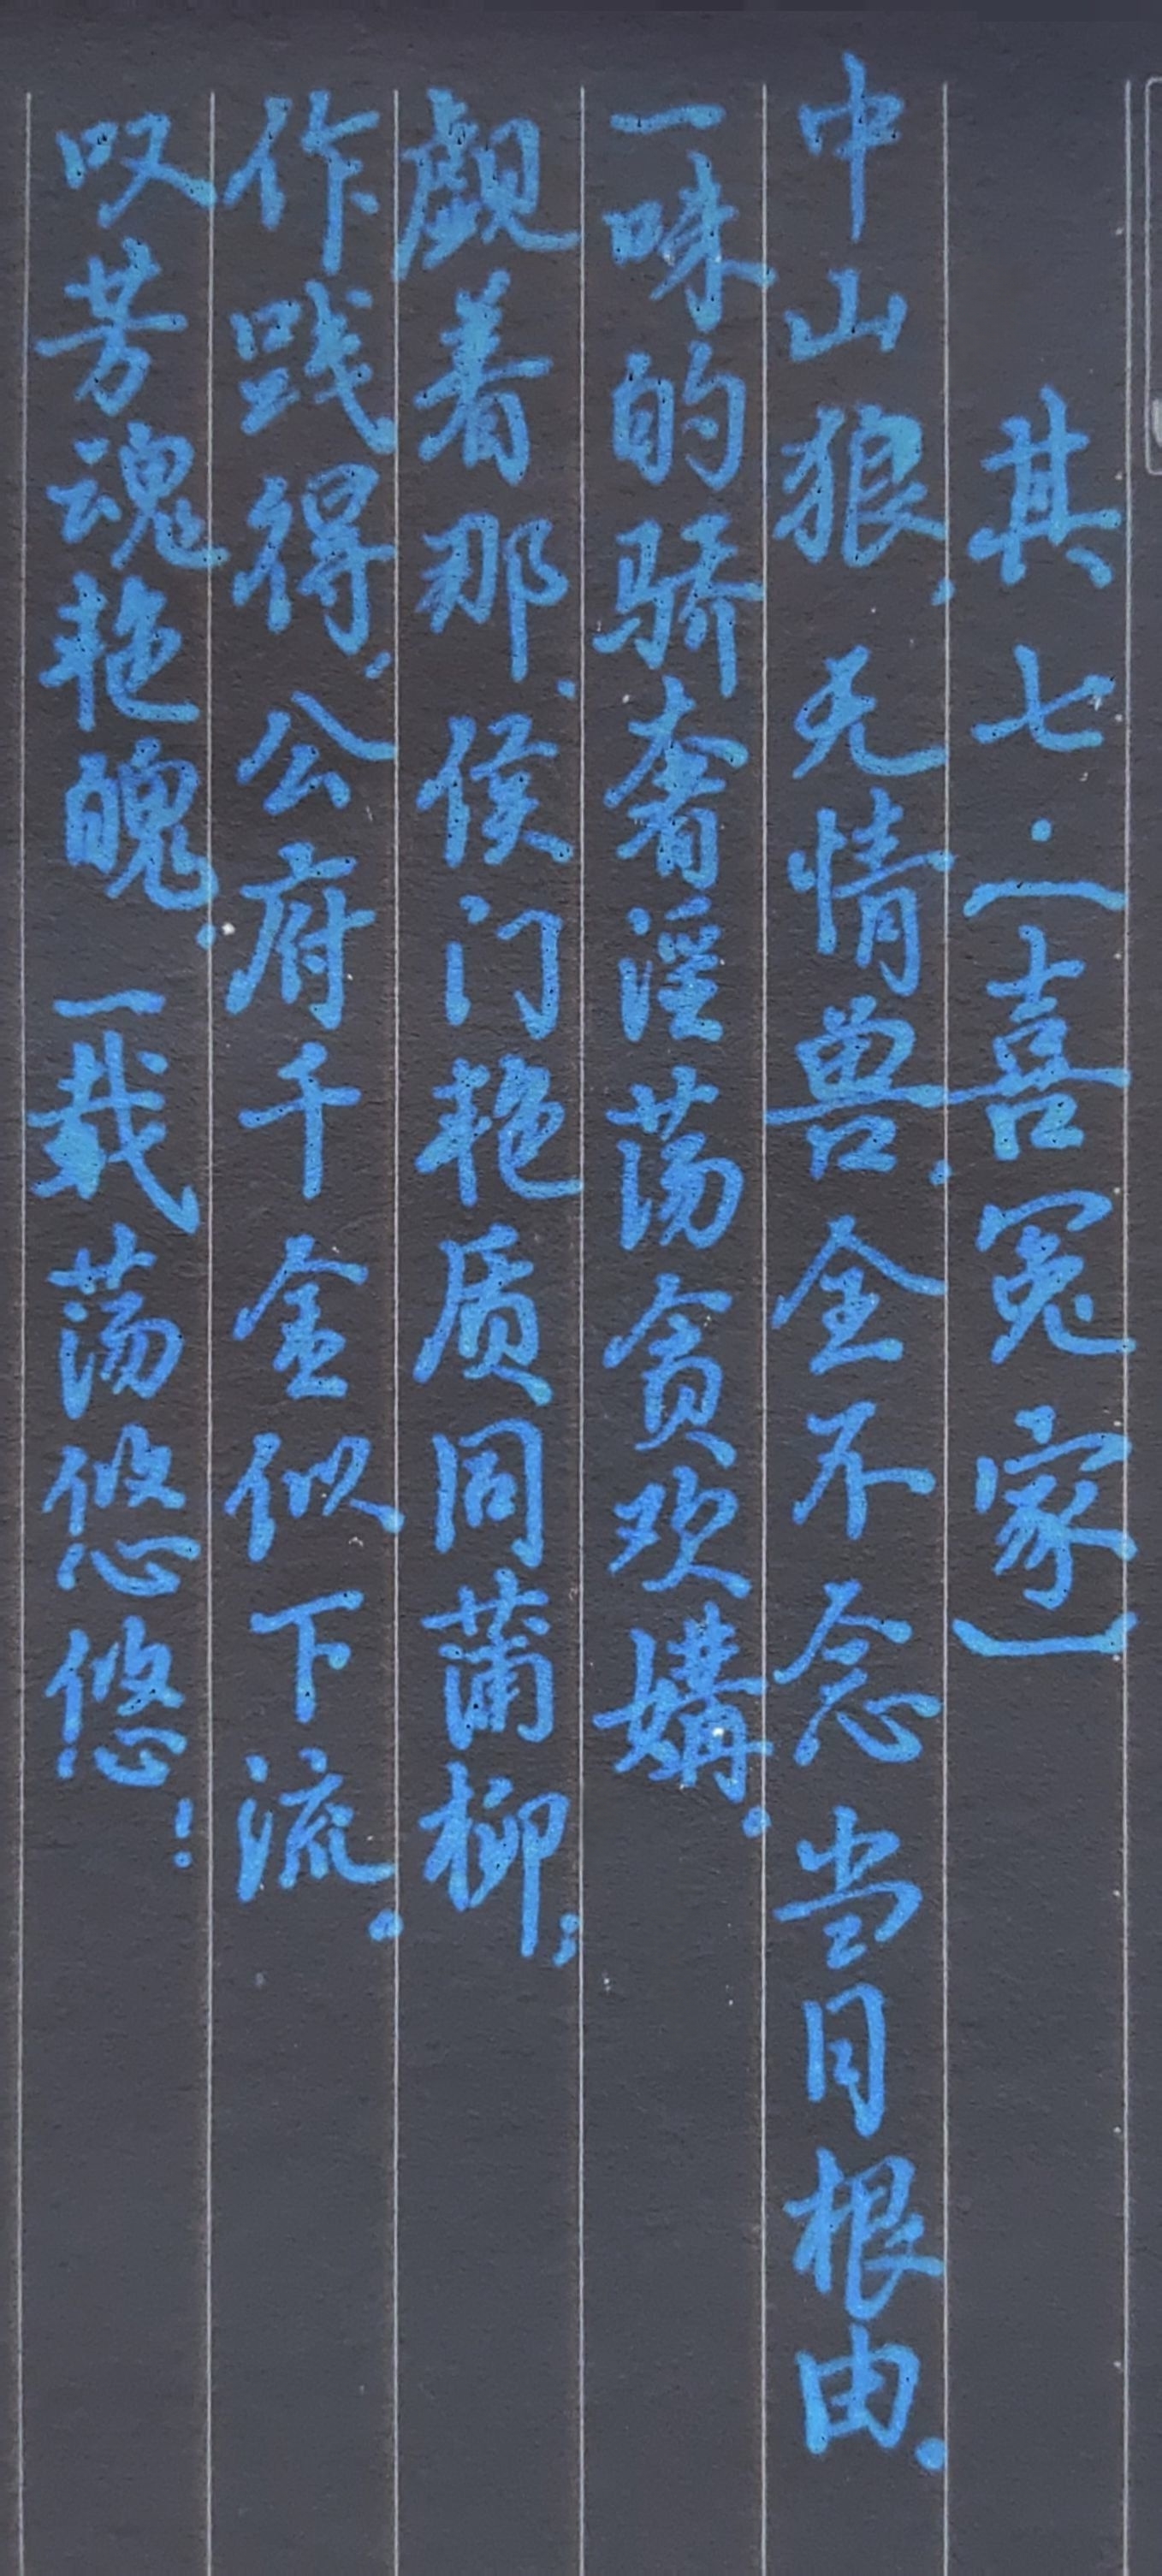 其七·【喜冤家】
中山狼，无情兽，全不念当日根由。
一味的骄奢淫荡贪欢媾。
觑着那，侯门艳质同蒲柳；
作践得，公府千金似下流。
叹芳魂艳魄，一载荡悠悠！